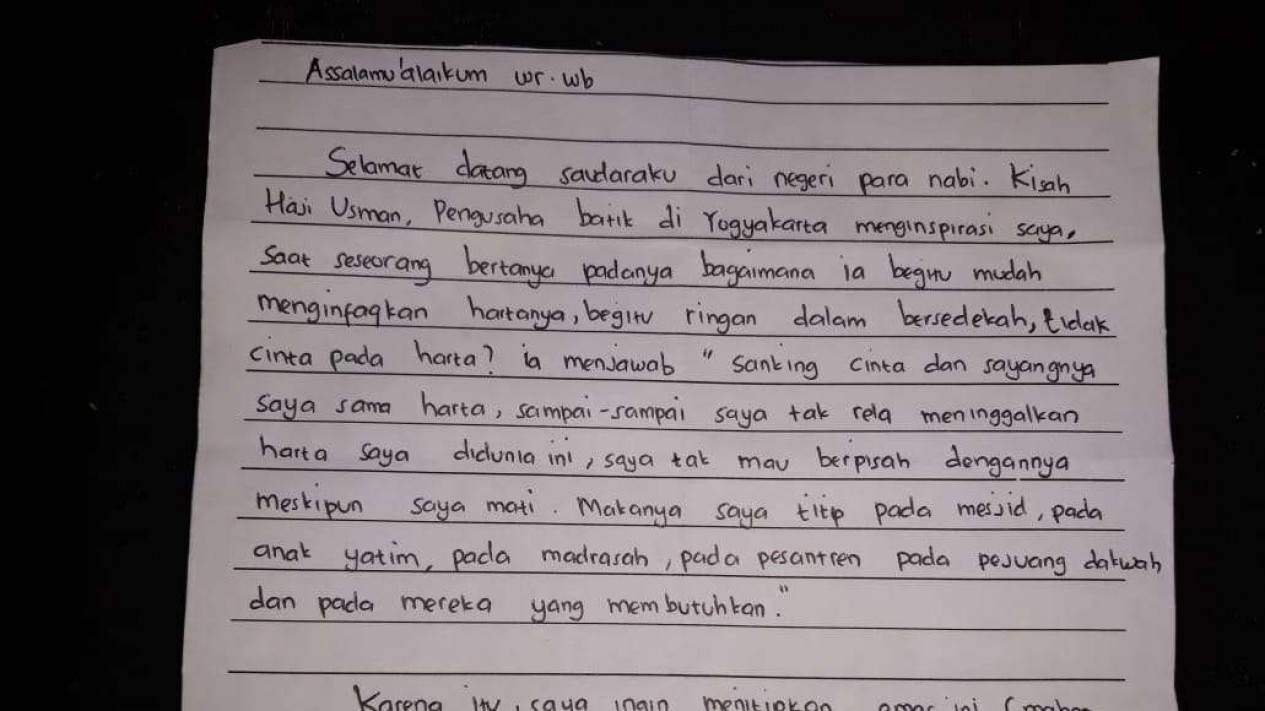 Assalamu'alaikum wr. wb
Selamat datang saudaraku dari negeri para nabi. Kisah
Haji Usman, Pengusaha batik di Yogyakarta menginspirasi saya,
Saat seseorang bertanya padanya bagaimana ia begitu mudah
menginfaqkan hartanya, begitu ringan dalam bersedekah, tidak
cinta pada harta? ia menjawab " Sanking cinta dan sayangnya
saya sama harta, sampai-sampai saya tak rela meninggalkan
harta saya didunia ini, saya tak mau berpisah dengannya
meskipun saya mati. Makanya saya titip pada mesjid, pada
anak yatim, pada madrasah, pada pesantren pada pejuang dakwah
dan pada mereka yang membutuhkan."
Karena itu, saya ingin menitipkan ini